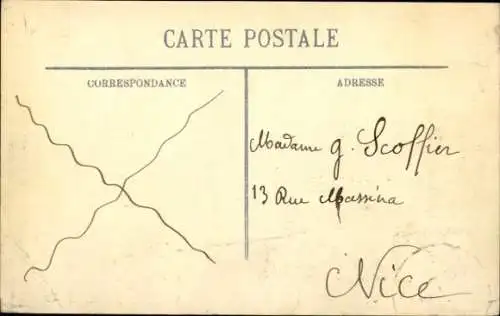 CARTE POSTALE
CORRESPONDANCE
ADRESSE
Madame g. Scoffier
13 Rue Masséna
Nice